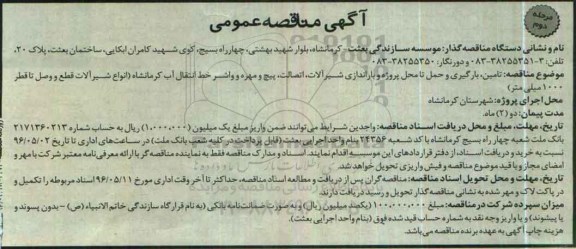 مرحله دوم
آگهی مناقصه عمومی
نام و نشانی دستگاه مناقصه گذار: موسسه سازندگی بعثت - کرمانشاه، بلوار شهید بهشتی، چهارراه بسیج، کوی شهید کامران ابکایی، ساختمان بعثت، پلاک ۲۰،
تلفن: ۳-۳۸۲۵۵۳۵۱-۰۸۳ و دورنگار: ۳۸۲۵۵۳۵۰-۰۸۳
موضوع مناقصه: تامین، بارگیری و حمل تا محل پروژه و باراندازی شیرآلات، اتصالات، پیچ و مهره و واشر خط انتقال آب کرمانشاه (انواع شیرآلات قطع و وصل تا قطر
۱۰۰۰ میلی متر)
محل اجرای پروژه: شهرستان کرمانشاه
مدت پیمان: دو (۲) ماه.
تاریخ، مهلت، مبلغ و محل دریافت اسناد مناقصه: واجدین شرایط می توانند ضمن واریز مبلغ یک میلیون (۱,۰۰۰,۰۰۰) ریال به حساب شماره ۲۱۷۱۳۶۰۲۱۳
بانک ملت شعبه چهارراه بسیج کرمانشاه با کد شعبه ۲۴۳۵۶ بنام واحد اجرایی بعثت (قابل پرداخت در کلیه شعب بانک ملت) در ساعت‌های اداری تا تاریخ ۹۶/۰۵/۰۲
نسبت به خرید و دریافت اسناد از دفتر قراردادهای این موسسه اقدام نمایند. اسناد و مدارک مناقصه فقط به نماینده مناقصه گر با ارائه معرفی‌نامه معتبر شرکت با مهر و
امضای مجاز و با قید موضوع مناقصه و فیش واریزی تحویل خواهد شد.
تاریخ، مهلت و محل تحویل اسناد مناقصه: مناقصه گران پس از دریافت و مطالعه اسناد مناقصه، حداکثر تا آخر وقت اداری مورخ ۹۶/۰۵/۱۱ اسناد مربوطه را تکمیل و
در پاکت لاک و مهر شده به نشانی مناقصه گذار تحویل و رسید دریافت دارند.
میزان سپرده شرکت در مناقصه: مبلغ ۱۰۰,۰۰۰,۰۰۰ (یکصد میلیون ریال) و به صورت ضمانت‌نامه بانکی (به نام قرارگاه سازندگی خاتم الانبیاء (ص) - بدون پسوند و
یا پیشوند) و یا واریز وجه نقد به شماره حساب قید شده فوق (بنام واحد اجرایی بعثت).
هزینه چاپ آگهی به عهده برنده مناقصه می‌باشد.